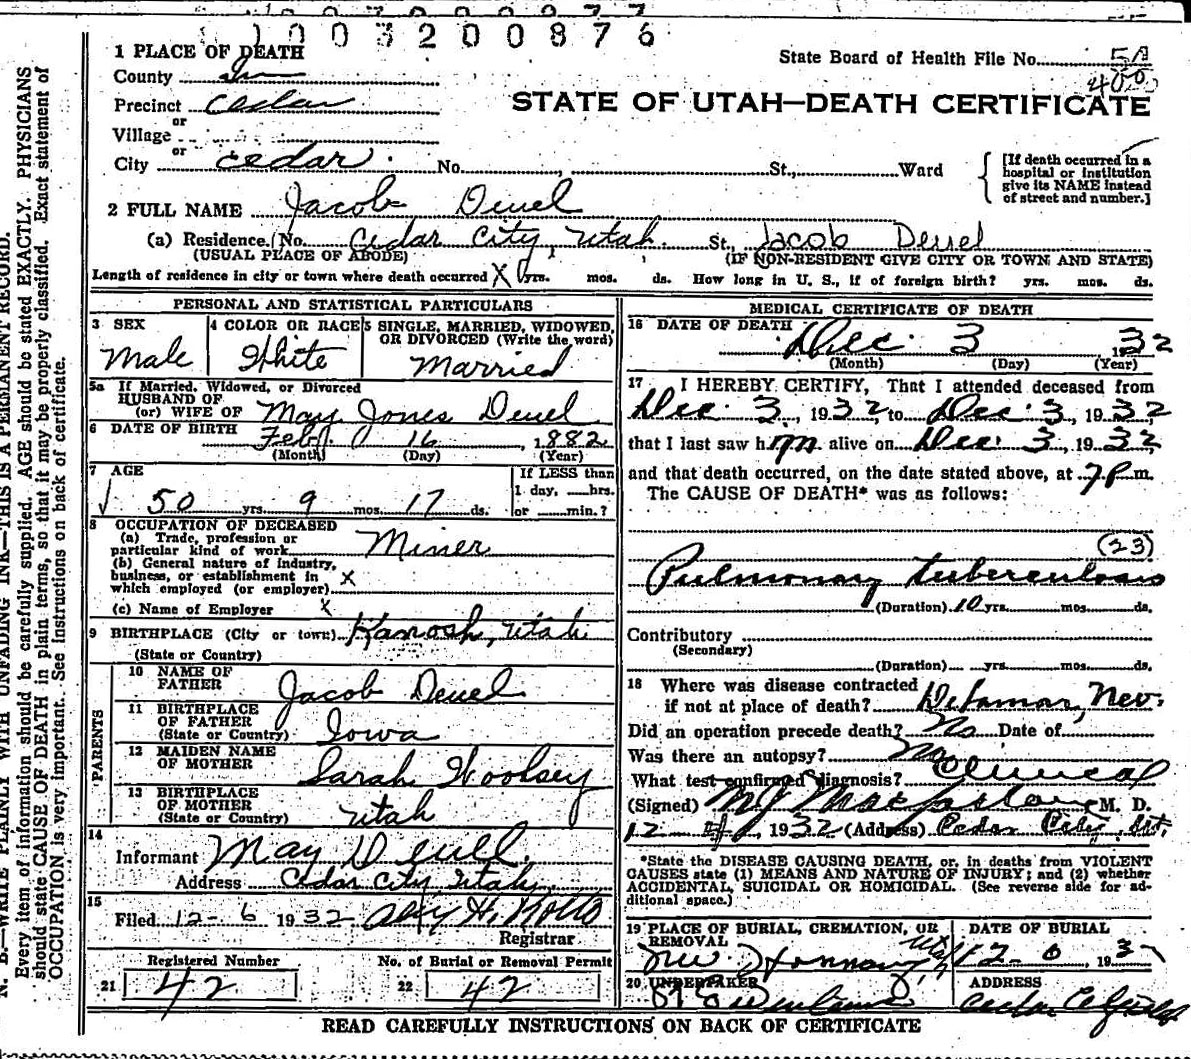 1003200876
1 PLACE OF DEATH
State Board of Health File No. 58
County
400
Precinct Cedar
STATE OF UTAH—DEATH CERTIFICATE
or
Village
or
City Cedar. No. , St., Ward
[If death occurred in a
hospital or institution
give its NAME instead
of street and number.]
2 FULL NAME Jacob Deuel
(a) Residence. (No. Cedar City, Utah. St., Jacob Deuel
(USUAL PLACE OF ABODE) (IF NON-RESIDENT GIVE CITY OR TOWN AND STATE)
Length of residence in city or town where death occurred X yrs. mos. ds. How long in U. S., if of foreign birth? yrs. mos. ds.
PERSONAL AND STATISTICAL PARTICULARS
3 SEX
Male
4 COLOR OR RACE
White
5 SINGLE, MARRIED, WIDOWED,
OR DIVORCED (Write the word)
Married
5a If Married, Widowed, or Divorced
HUSBAND OF
(or) WIFE OF May Jones Deuel
6 DATE OF BIRTH Feby 16, 1882
(Month) (Day) (Year)
7 AGE
50 yrs. 9 mos. 17 ds.
If LESS than
1 day, hrs.
or min.?
8 OCCUPATION OF DECEASED
(a) Trade, profession or
particular kind of work Miner
(b) General nature of industry,
business, or establishment in
which employed (or employer) X
(c) Name of Employer X
9 BIRTHPLACE (City or town) Kanosh, Utah
(State or Country)
PARENTS
10 NAME OF
FATHER Jacob Deuel
11 BIRTHPLACE
OF FATHER
(State or Country) Iowa
12 MAIDEN NAME
OF MOTHER Sarah Woolsey
13 BIRTHPLACE
OF MOTHER
(State or Country) Utah
14
Informant May Deuell.
Address Cedar City, Utah,
15
Filed 12-6 1932
Registrar
Registered Number
21 42
No. of Burial or Removal Permit
22 42
MEDICAL CERTIFICATE OF DEATH
16 DATE OF DEATH Dec. 3 1932
(Month) (Day) (Year)
17 I HEREBY CERTIFY, That I attended deceased from
Dec. 3, 1932, to Dec. 3, 1932,
that I last saw h im alive on Dec. 3, 1932,
and that death occurred, on the date stated above, at 7 P. m.
The CAUSE OF DEATH* was as follows:
(23)
Pulmonary tuberculosis
(Duration) 10 yrs. mos. ds.
Contributory
(Secondary)
(Duration) yrs. mos. ds.
18 Where was disease contracted
if not at place of death? Delamar, Nev.
Did an operation precede death? No Date of
Was there an autopsy? No
What test confirmed diagnosis? Clinical
(Signed) M. J. Macfarlane M. D.
12 1932 (Address) Cedar City, Ut.
*State the DISEASE CAUSING DEATH, or, in deaths from VIOLENT
CAUSES state (1) MEANS AND NATURE OF INJURY; and (2) whether
ACCIDENTAL, SUICIDAL OR HOMICIDAL. (See reverse side for ad-
ditional space.)
19 PLACE OF BURIAL, CREMATION, OR
REMOVAL
New Harmony, Utah
DATE OF BURIAL
12- 6, 193
20 UNDERTAKER
ADDRESS
Cedar
READ CAREFULLY INSTRUCTIONS ON BACK OF CERTIFICATE
N. B.—WRITE PLAINLY WITH UNFADING INK—THIS IS A PERMANENT RECORD.
Every item of information should be carefully supplied. AGE should be stated EXACTLY. PHYSICIANS
should state CAUSE OF DEATH in plain terms, so that it may be properly classified. Exact statement of
OCCUPATION is very important. See instructions on back of certificate.